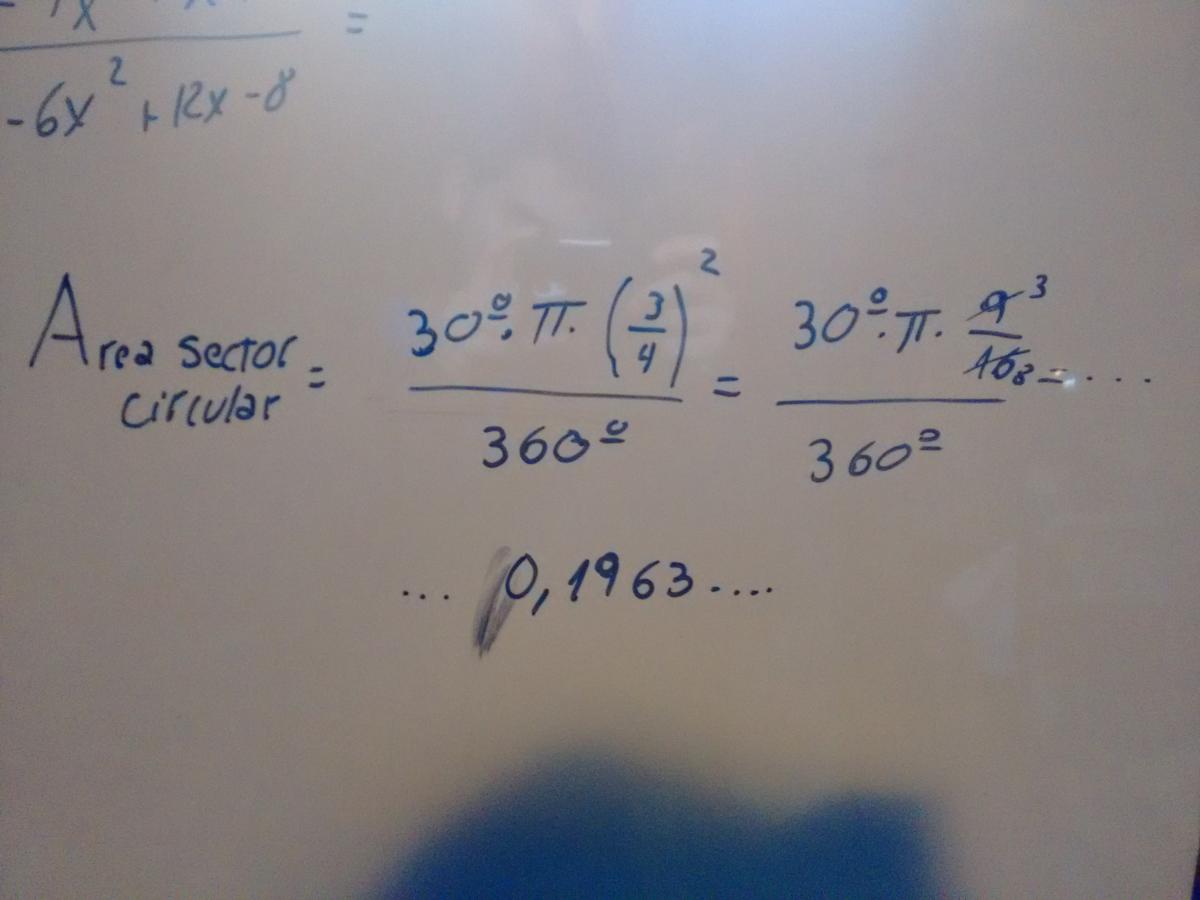 =
-6x² + 12x - 8
Area sector circular = 30º · π · (3/4)² / 360º = 30º · π · 9 3 / 16 8 / 360º = ...
... 0,1963....